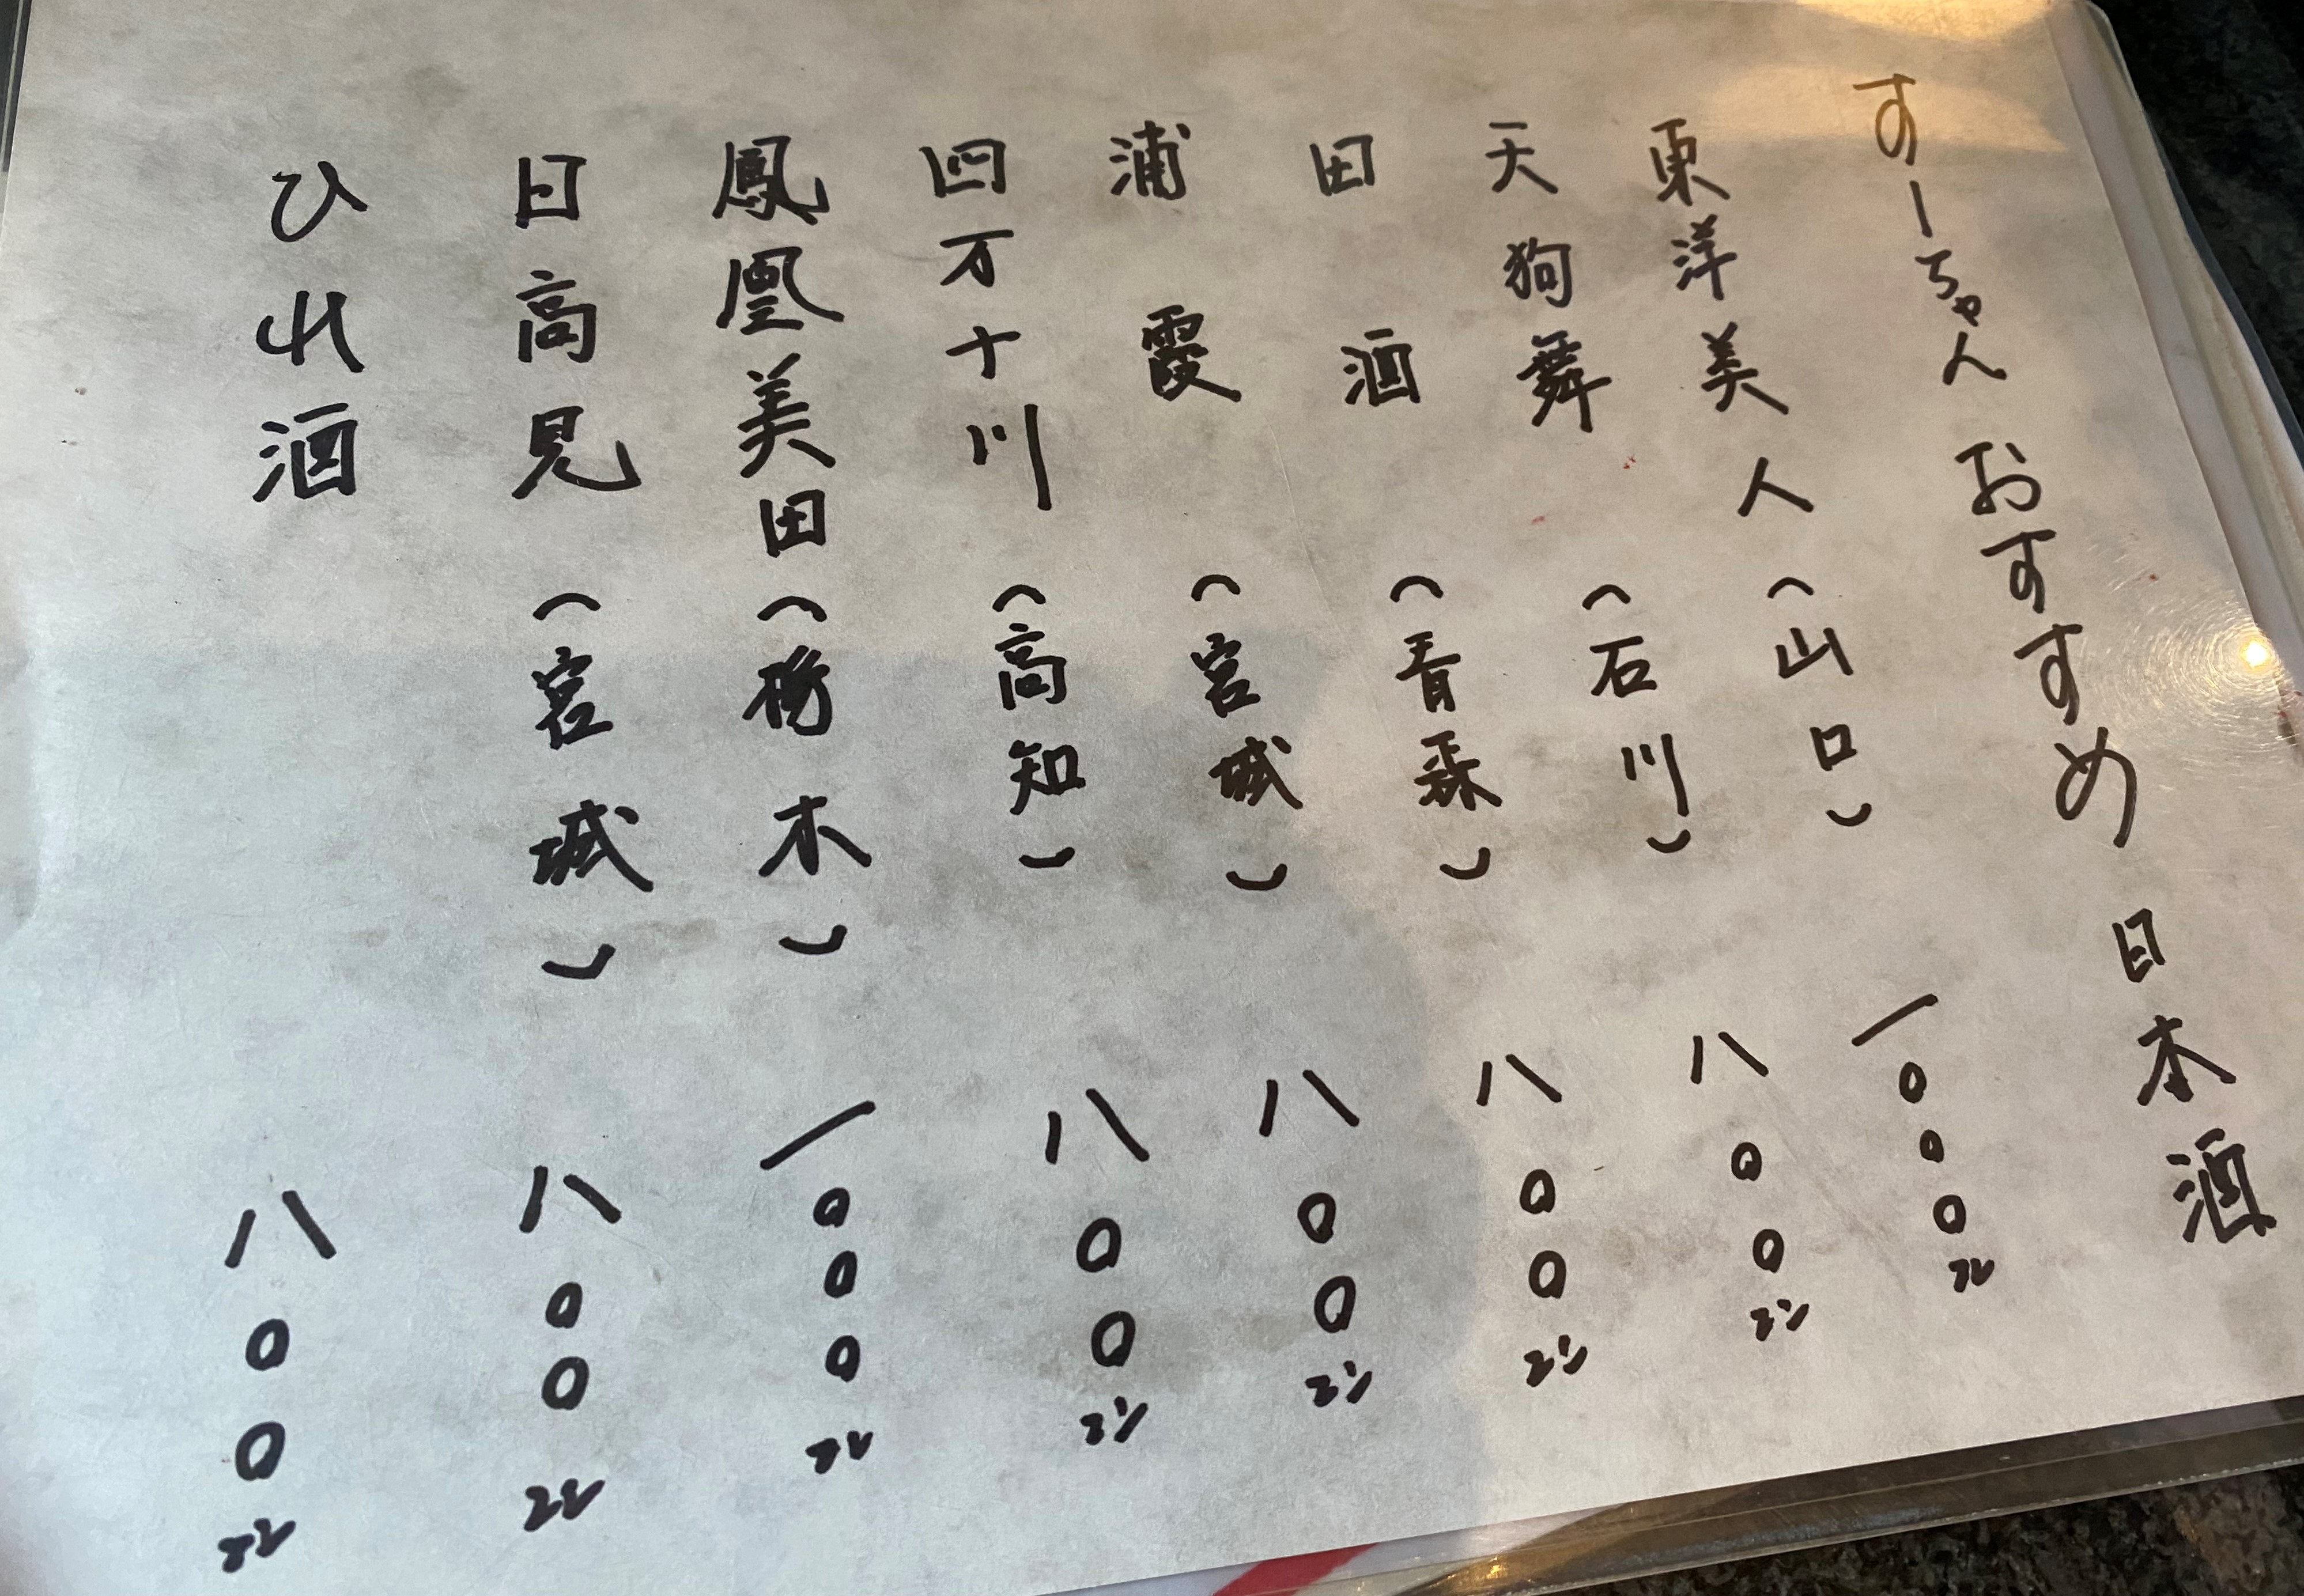 すーちゃんおすすめ日本酒
東洋美人（山口）一〇〇〇エン
天狗舞（石川）八〇〇エン
田酒（青森）八〇〇エン
浦霞（宮城）八〇〇エン
四万十川（高知）八〇〇エン
鳳凰美田（栃木）一〇〇〇エン
日高見（宮城）八〇〇エン
ひれ酒八〇〇エン